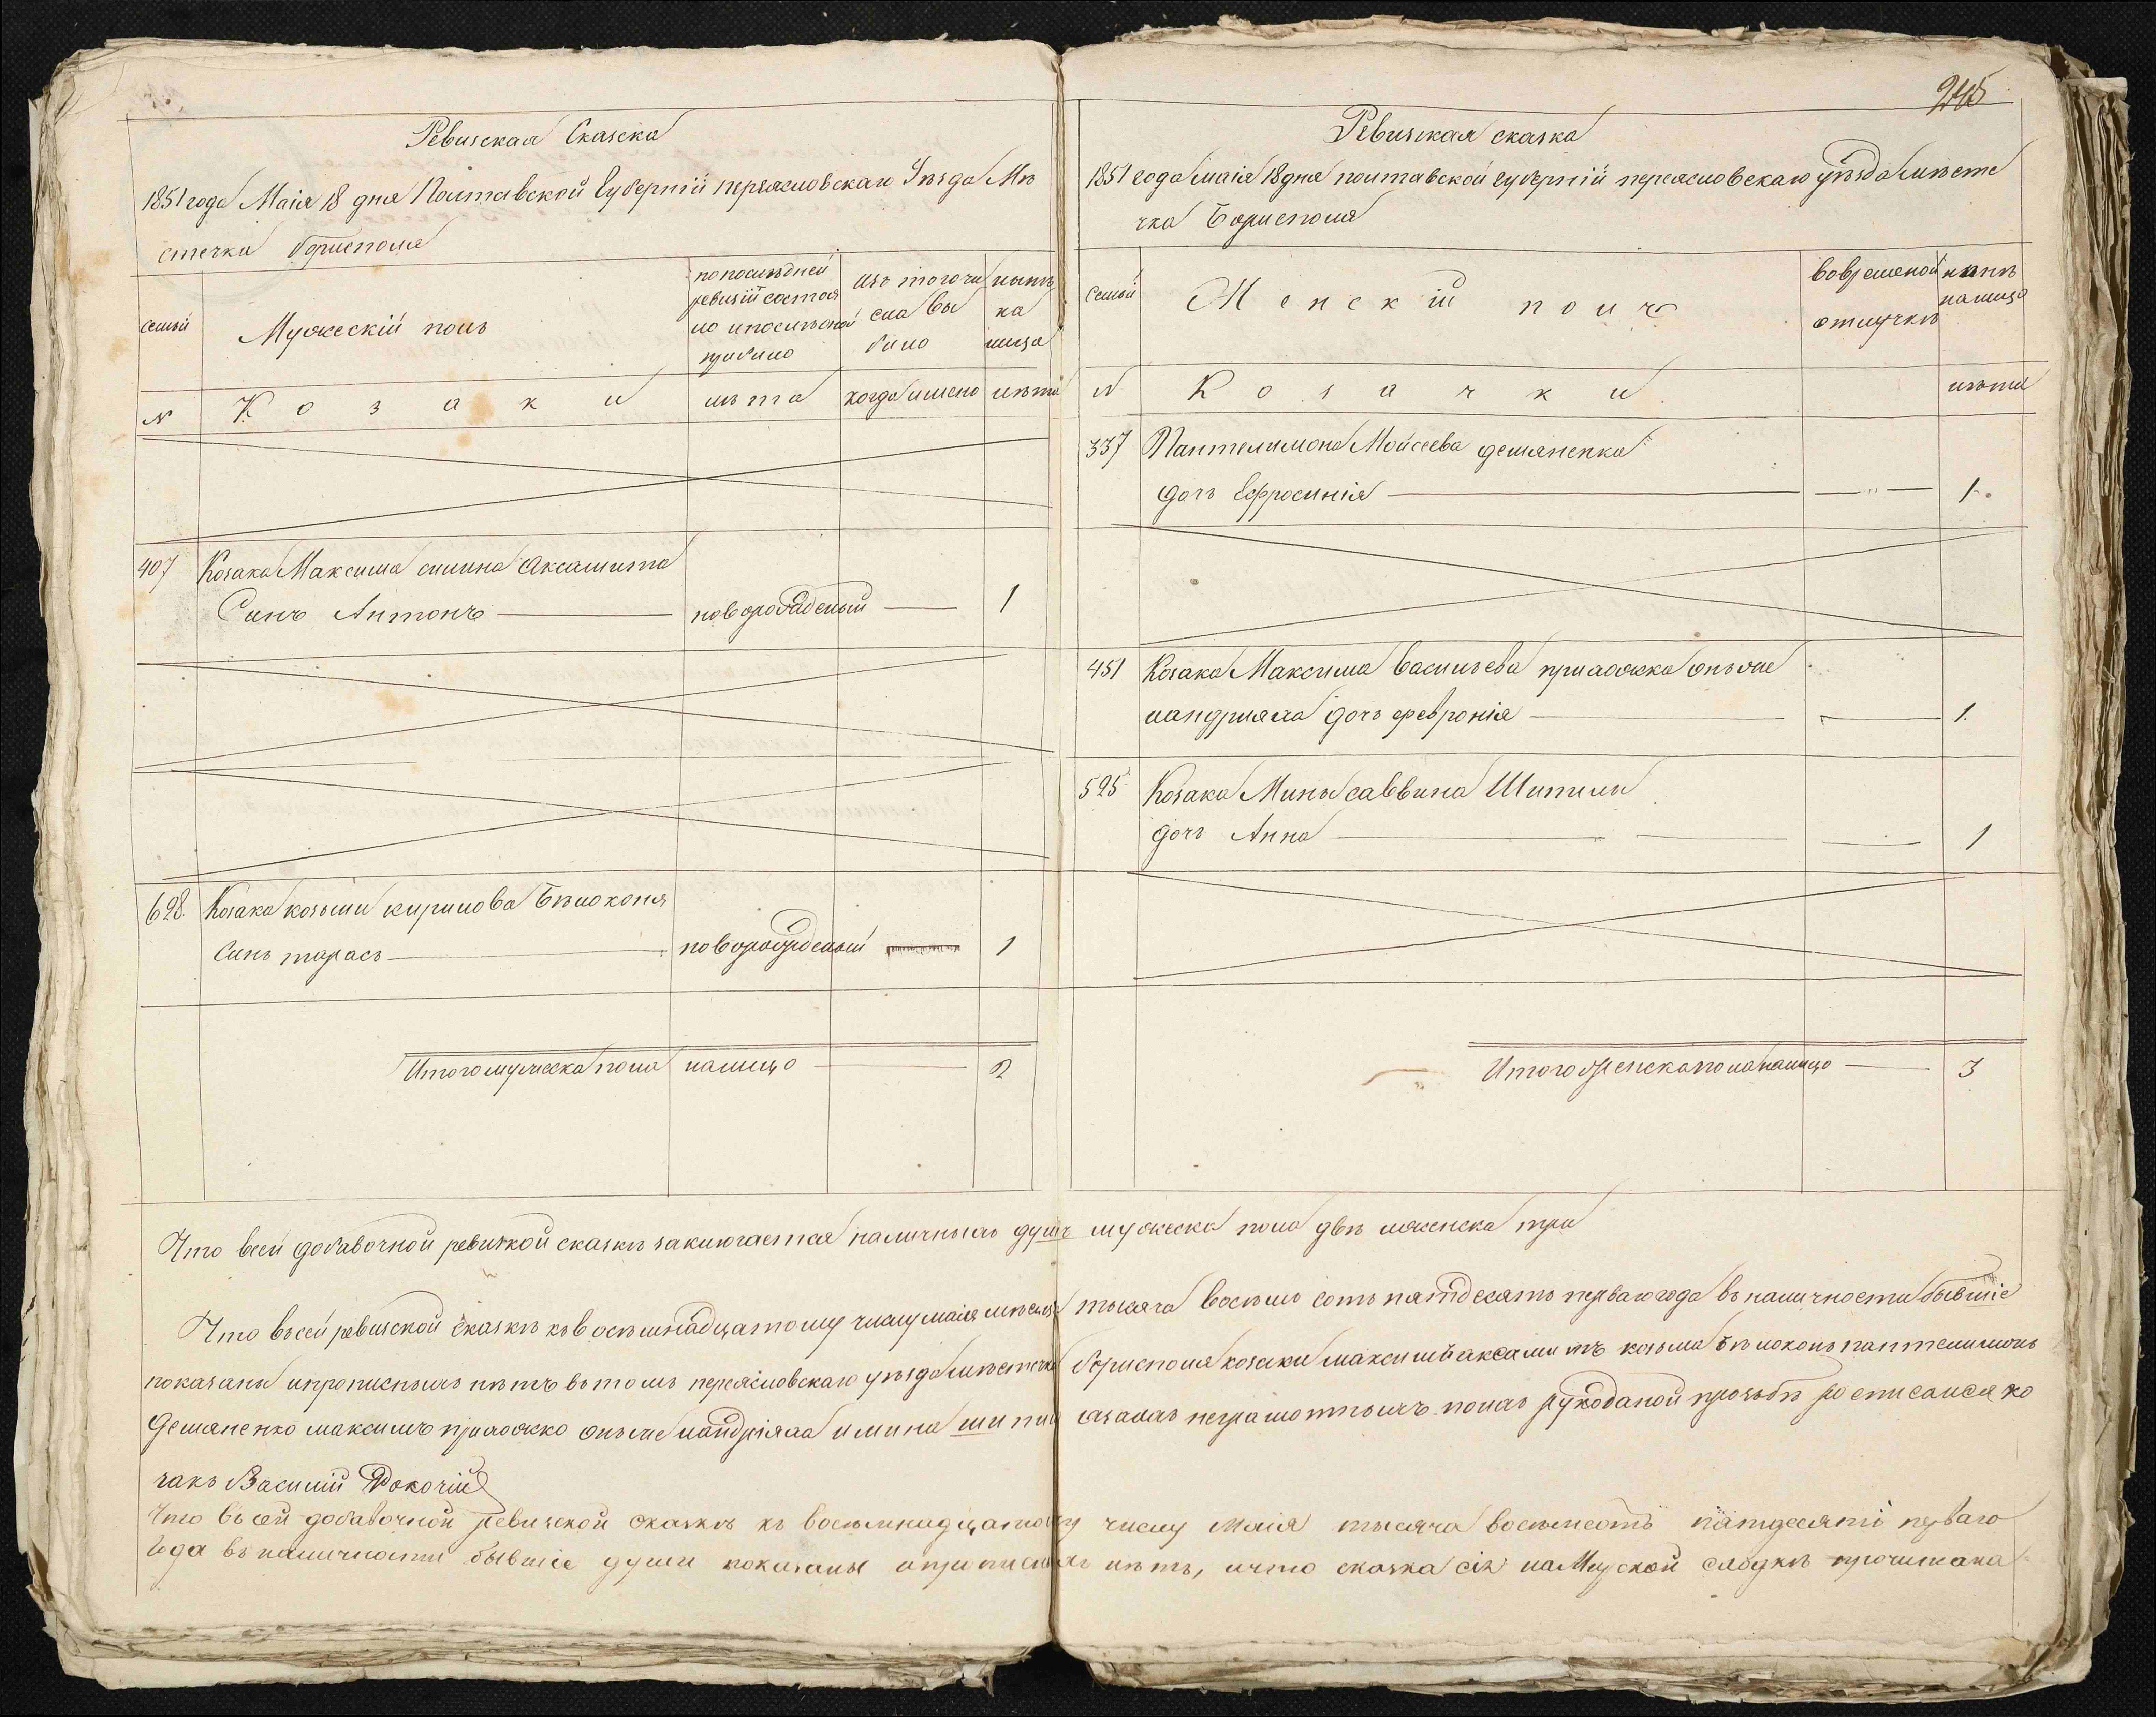 Ревизская Сказка
1851 года Маія 18 дня Полтавской Губерніи переясловскаго Уезда Мѣ
стечка борисполя
семьи
Мужескій полъ
попослѣдней ревизіи состоя
ло ипослѣтого прибило
изъ того чи
сла вы
било
нынѣ
на
лицо
№
Козаки
лѣта
когда имено
лѣта
407
Козака Максима силина Аксамита
Синъ Антонъ
новорожденый
1
628.
Козака козьми кирилова Бѣлоконя
Синъ тарасъ
новорожденый
1
Итого мужеска пола налицо
2
245
Ревизская сказка
1851 года маія 18 дня полтавской губерніи переясловскаго уѣзда мѣсте
чка Борисполя
Семьи
Женскій полъ
вовременой
отлучкѣ
нынѣ
налицо
№
Козачки
лѣта
337
Пантелимона Мойсеева демяненка
дочъ Ефросинія
1.
451
Козака Максима Васильева приложка онъже
мандрыка дочъ февронія
1.
525
Козака Мины саввина Шипили
дочъ Анна
1
Итого женска пола налицо
3
Что всей добавочной ревизкой сказкѣ заключается наличныхъ душъ мужеска пола двѣ иженска три
Что въсей ревизской сказкѣ къ восѣмнадцатому числу маія мѣсяца тысяча восѣмъ сотъ пятдесятъ перваго года въ наличности бывшіе
показаны ипрописныхъ нѣтъ въ томъ переясловскаго уѣзда мѣстечка борисполя козаки максимъ аксамитъ козьма бѣлоконь пантелимонъ
Демяненко максимъ приложко онъже мандрика и мина шипил
чакъ Василій Рокочій
Что въ сей добавочной ревизской сказкѣ къ восемнадцатому числу маія тысяча восемсотъ пятдесятъ перваго
года въ наличности бывшіе души показаны ипрописныхъ нѣтъ, ичто сказка сія на Мирской сходкѣ прочитана